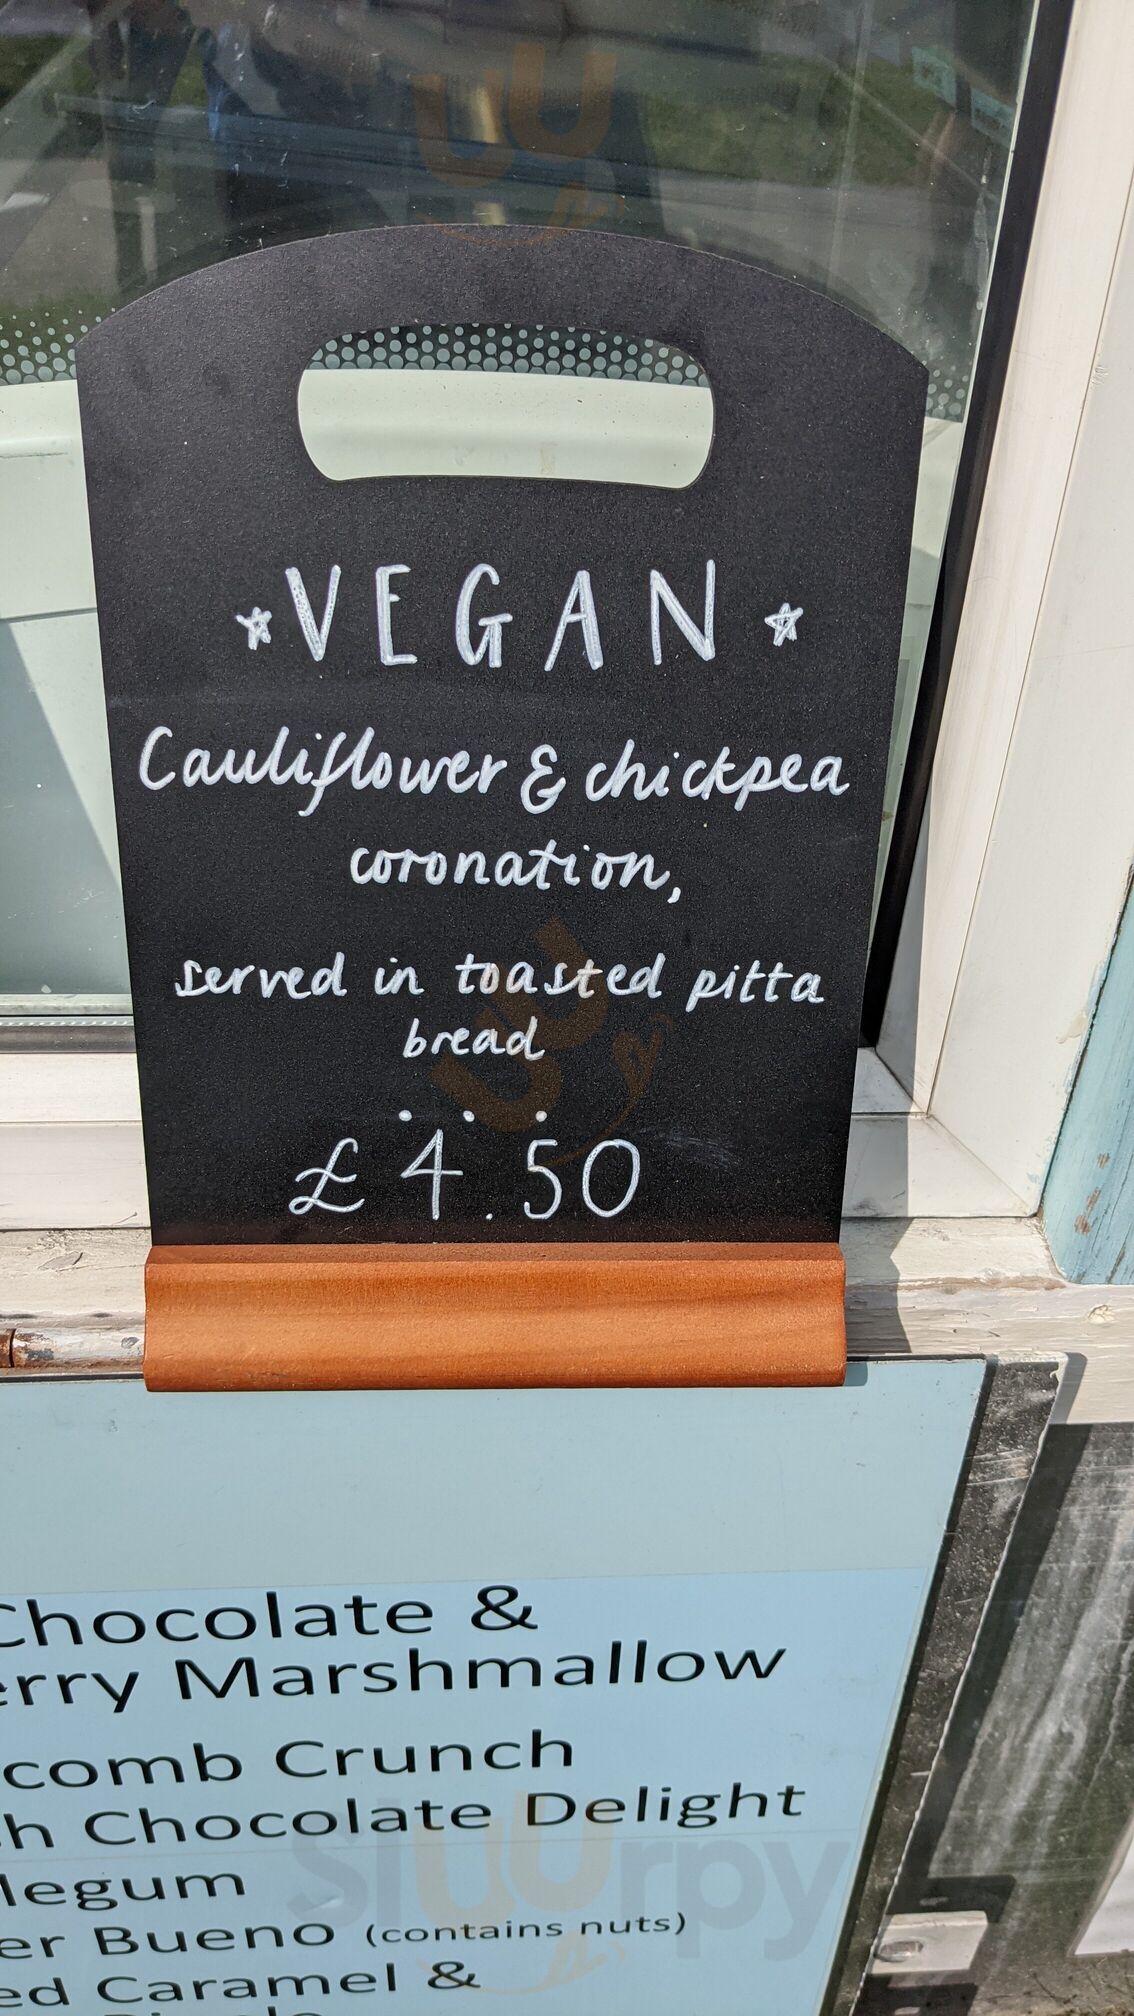 VEGAN
Cauliflower & chickpea
coronation,
served in toasted pitta
bread
...
£4.50
Chocolate &
Marshmallow
Crunch
Chocolate Delight
Bueno (contains nuts)
Caramel &
slurpy